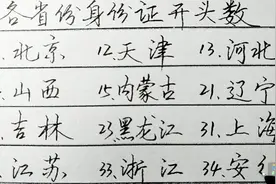 各省份身份证开头数
.北京 12.天津 13.河北
.山西 15.内蒙古 21.辽宁
.吉林 23.黑龙江 31.上海
.江苏 33.浙江 34.安